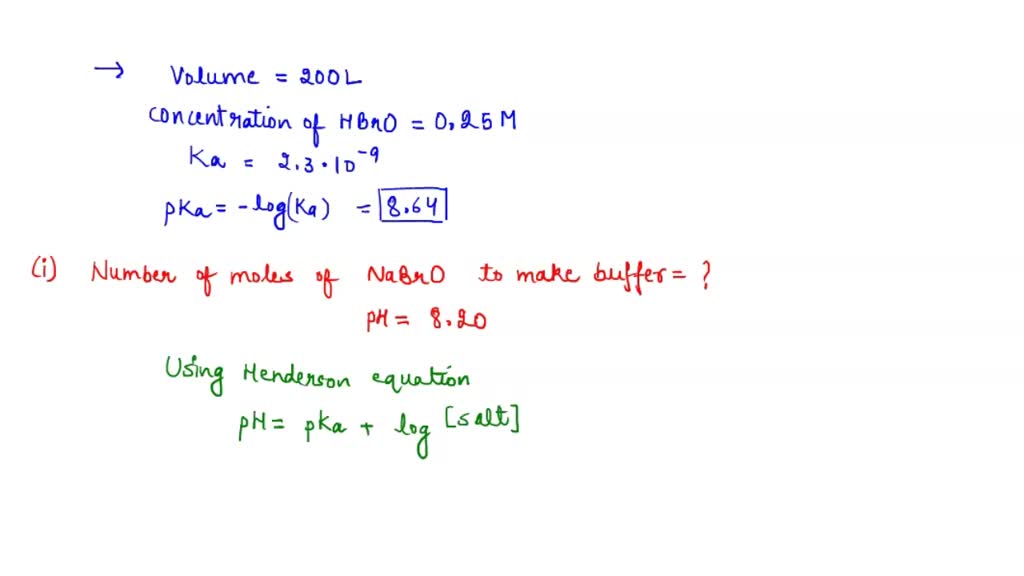 → Volume = 200L
Concentration of HBrO = 0.25 M
Ka = 2.3·10⁻⁹
pKa = -log(Ka) = 8.64
(i) Number of moles of NaBrO to make buffer = ?
pH = 8.20
Using Henderson equation
pH = pKa + log [salt]